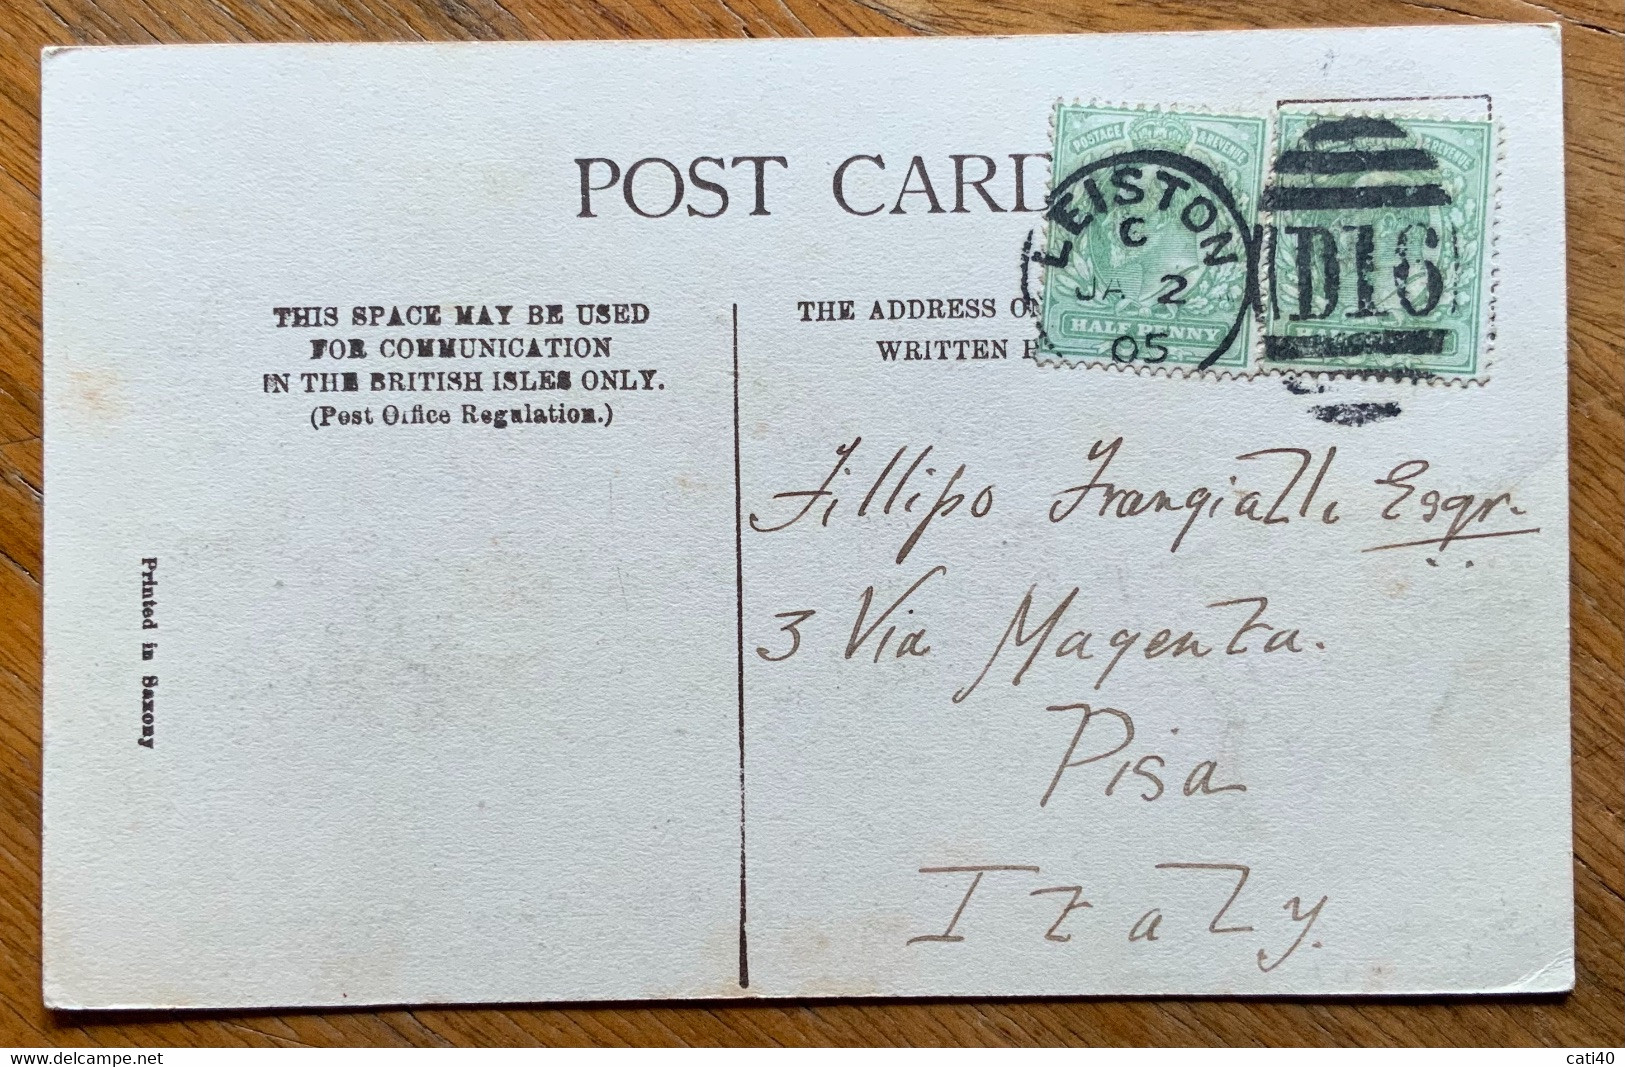 POST CARD
THIS SPACE MAY BE USED
FOR COMMUNICATION
IN THE BRITISH ISLES ONLY.
(Post Office Regulation.)
THE ADDRESS ON
WRITTEN
POSTAGE & REVENUE
HALF PENNY
REVENUE
LEISTON
C
JA 2
05
D16
Fillipo Frangialli Esqr.
3 Via Magenta.
Pisa
Italy.
Printed in Saxony
cati40